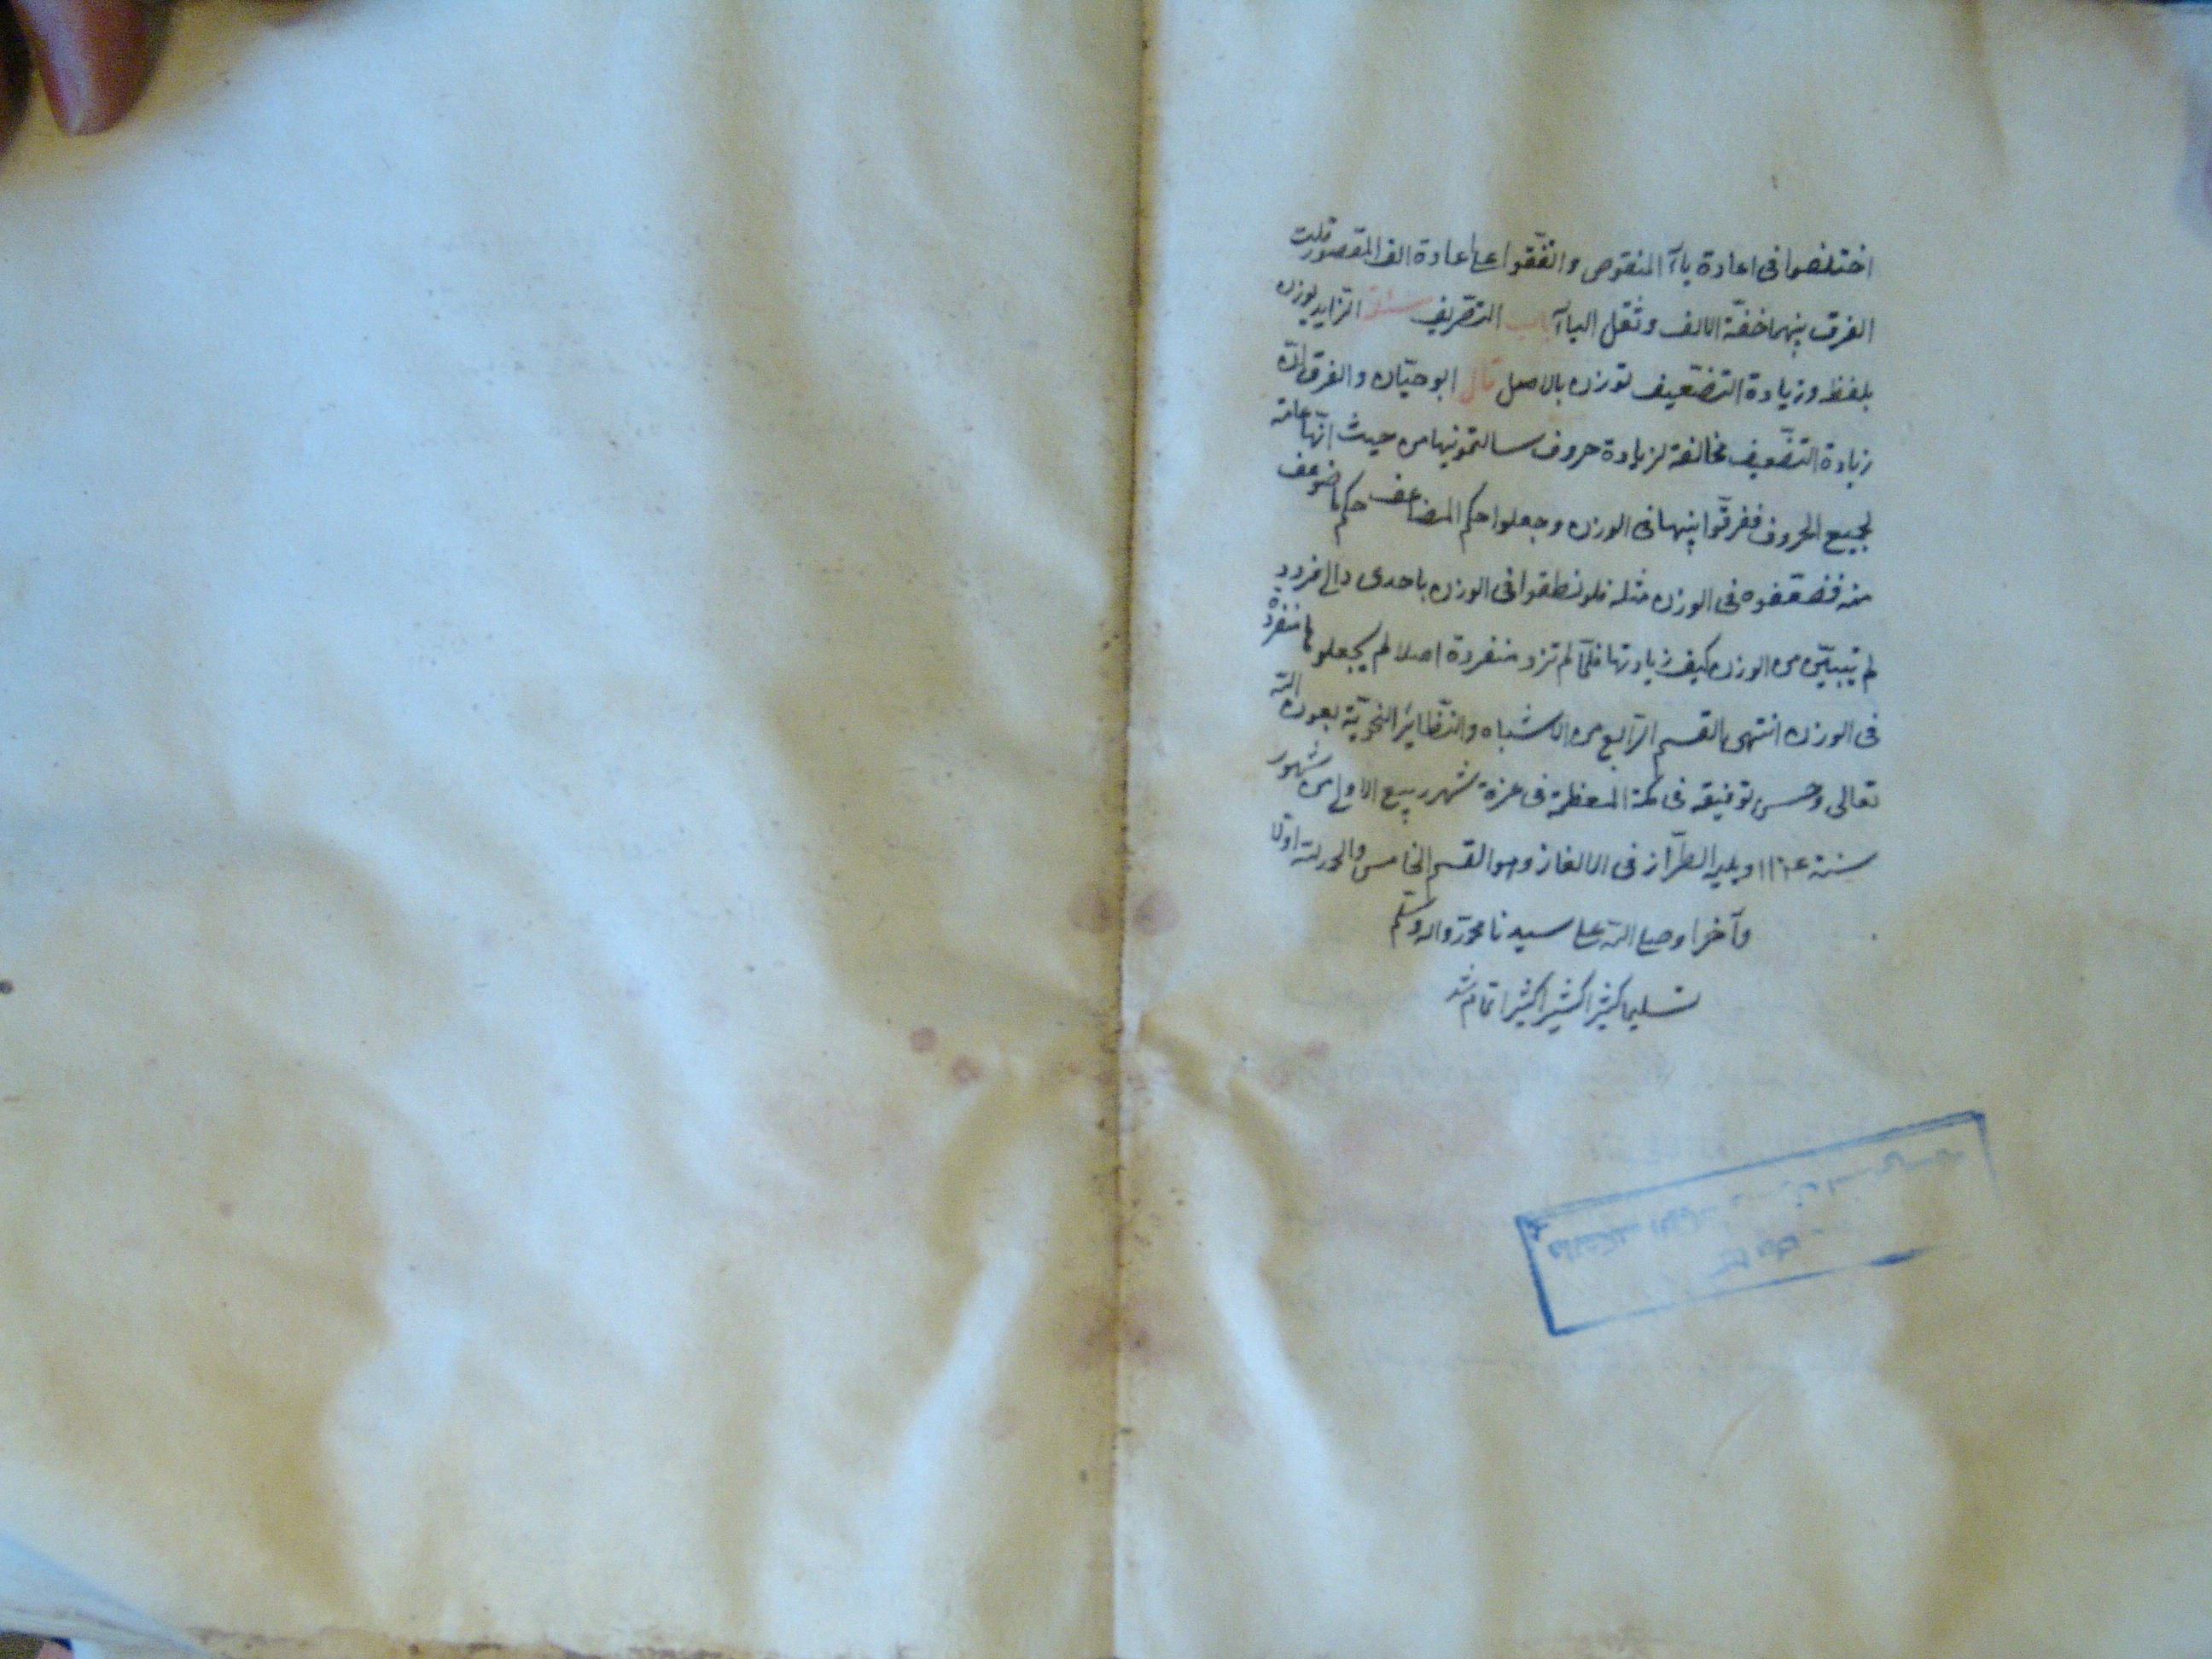 اختلفوا فى اعادة ياء المنقوص واتفقوا على اعادة الف المقصور قلت
الفرق بينهما خفة الالف وثقل الياء باب التصريف مسئلة الزايد يوزن
بلفظه وزيادة التضعيف توزن بالاصل قال ابو حيّان والفرق انّ
زيادة التضعيف مخالفة لزيادة حروف سالتمونيها من حيث انّها عامة
لجميع الحروف ففرقوا بينهما فى الوزن وجعلوا حكم المضاعف حكم ما ضوعف
منه فضعّفوه فى الوزن مثله فلو نطقوا فى الوزن باحدى دالى قردد
لم يتبيّن من الوزن كيف زيادتها فلمّا لم تزد منفردة اصلا لم يجعلوها منفردة
فى الوزن انتهى القسم الرّابع من الاشباه والنّظاير النحويّة بعون الله
تعالى وحسن توفيقه فى مكة المعظمة فى غرة شهر ربيع الاول من شهور
سنة ويليه الطّراز فى الالغاز وهو القسم الخامس والحمد لله اوّلا
وآخرا وصلى الله على سيدنا محمد واله وسلّم
تسليما كثيرا كثيرا كثيرا تمام شد